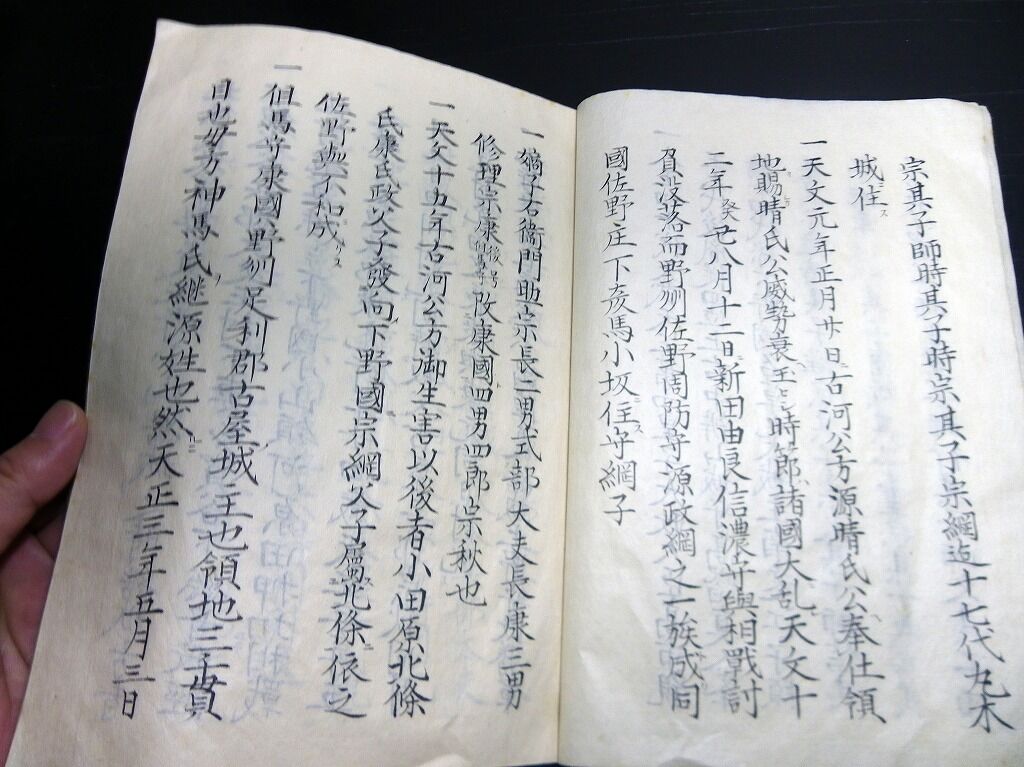 宗其子師時其子時宗其子宗綱迠十七代九木
城住ス
一天文元年正月廿日古河公方源晴氏公奉仕領
地賜晴氏公威勢衰玉ヒシ時節諸國大乱天文十
二年癸夘八月十二日新田由良信濃守與相戰討
負没落而野刕佐野周防守源政綱之一族成同
國佐野庄下彦馬小坂住守綱子
一嫡子右衞門助宗長二男式部大夫長康三男
修理宗康後号但馬守改康國四男四郎宗秋也
一天文十五年古河公方御生害以後者小田原北條
氏康氏政父子發向下野國宗綱父子屬北條依之
佐野与不和成
一但馬守康國野刕足利郡古屋城主也領地三千貫
目也母方神馬氏継源姓也然ルニ天正三年五月三日